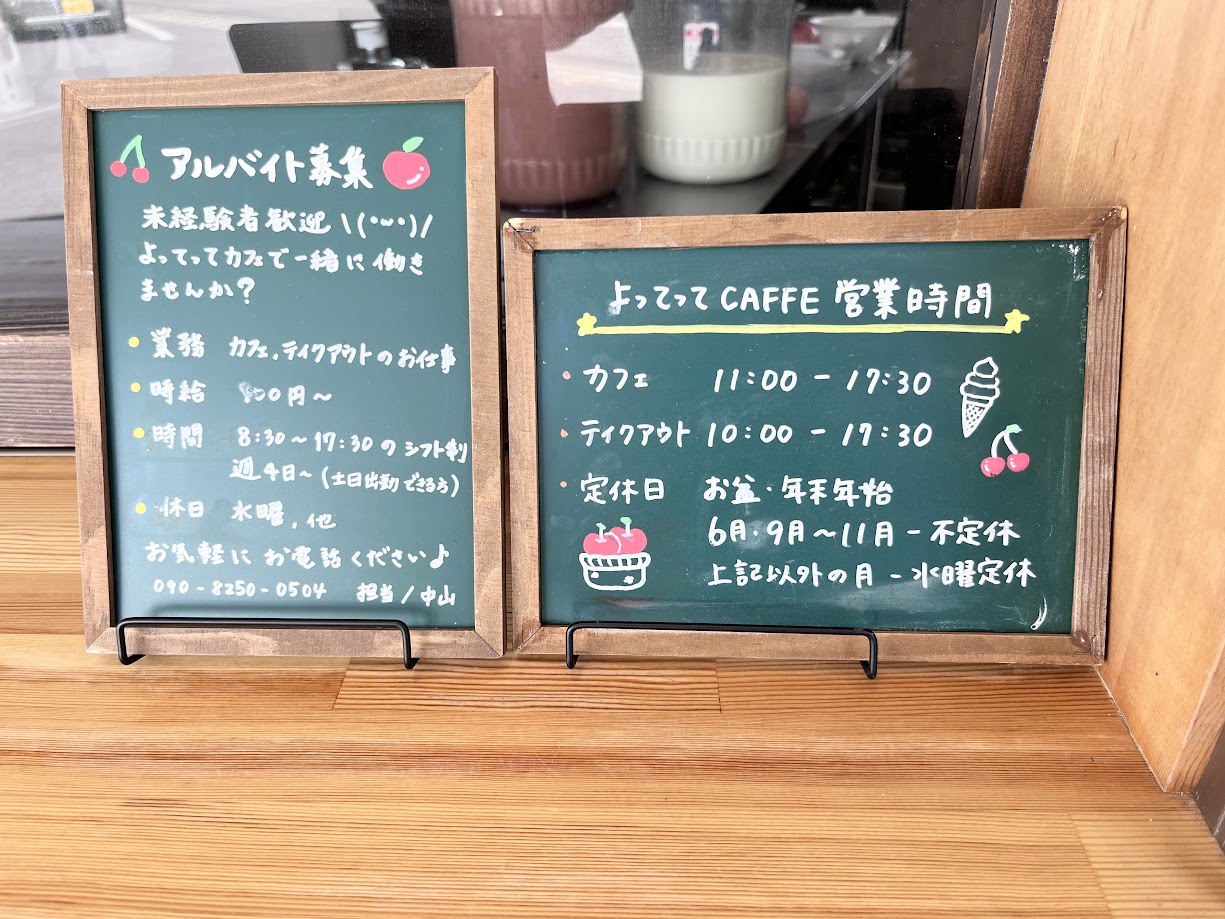 アルバイト募集
未経験者歓迎 \(・ω・)/
よってってカフェで一緒に働き
ませんか?
• 業務 カフェ,テイクアウトのお仕事
• 時給 円〜
• 時間 8:30〜17:30の シフト制
週4日〜(土日出勤できる方)
• 休日 水曜,他
お気軽に お電話ください♪
090-8250-0504 担当/中山
よってって CAFFE 営業時間
• カフェ 11:00 - 17:30
• テイクアウト 10:00 - 17:30
• 定休日 お盆・年末年始
6月・9月〜11月 - 不定休
上記以外の月 - 水曜定休